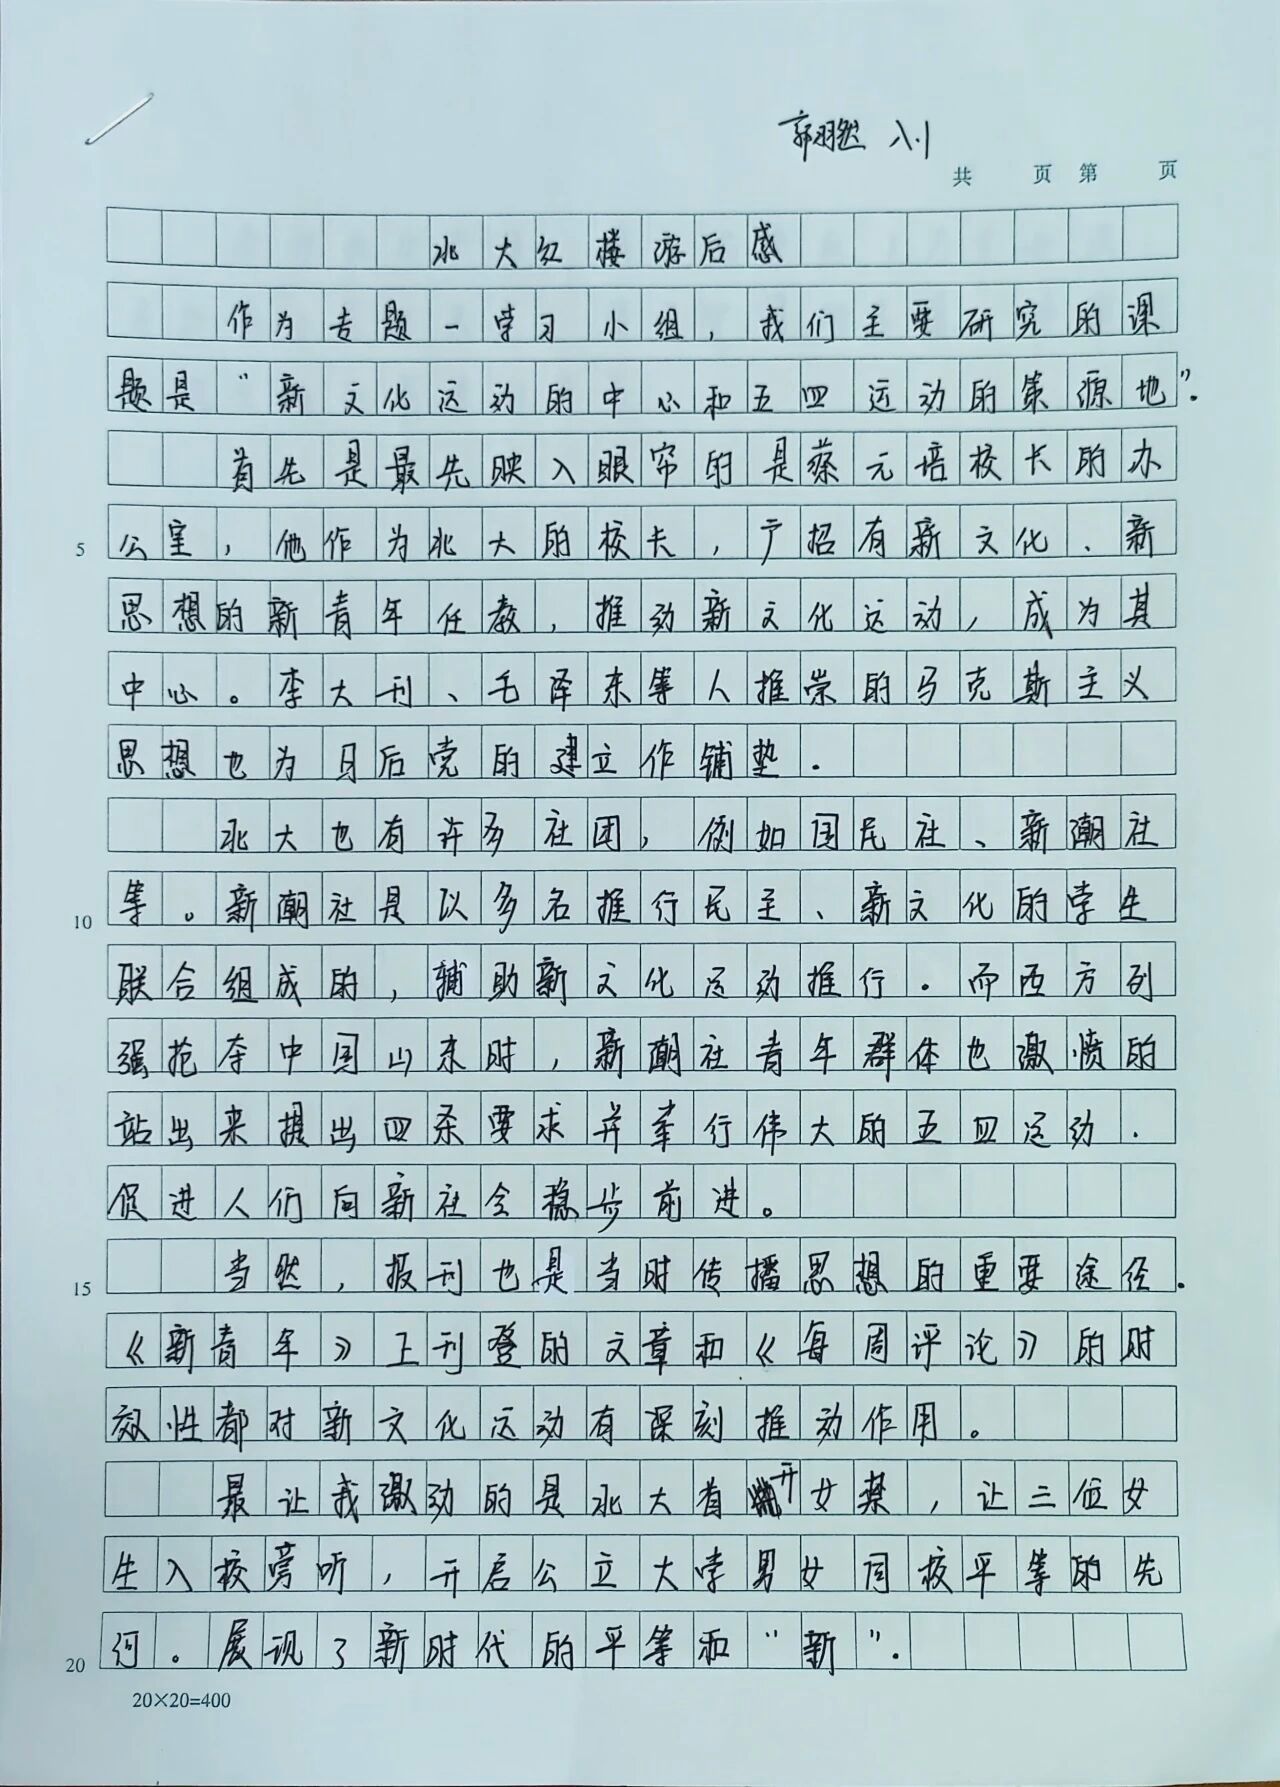 郭羽然 八.1
共 页 第 页
北大红楼游后感
作为专题一学习小组，我们主要研究的课
题是“新文化运动的中心和五四运动的策源地”.
首先是最先映入眼帘的是蔡元培校长的办
公室，他作为北大的校长，广招有新文化、新
思想的新青年任教，推动新文化运动，成为其
中心。李大刊、毛泽东等人推崇的马克斯主义
思想也为日后党的建立作铺垫.
北大也有许多社团，例如国民社、新潮社
等。新潮社是以多名推行民主、新文化的学生
联合组成的，辅助新文化运动推行.而西方列
强抢夺中国山东时，新潮社青年群体也激愤的
站出来提出四条要求并举行伟大的五四运动.
促进人们向新社会稳步前进。
当然，报刊也是当时传播思想的重要途径.
《新青年》上刊登的文章和《每周评论》的时
效性都对新文化运动有深刻推动作用。
最让我激动的是北大首开女禁，让三位女
生入校旁听，开启公立大学男女同校平等的先
河。展现了新时代的平等和“新”.
5
10
15
20
20×20=400